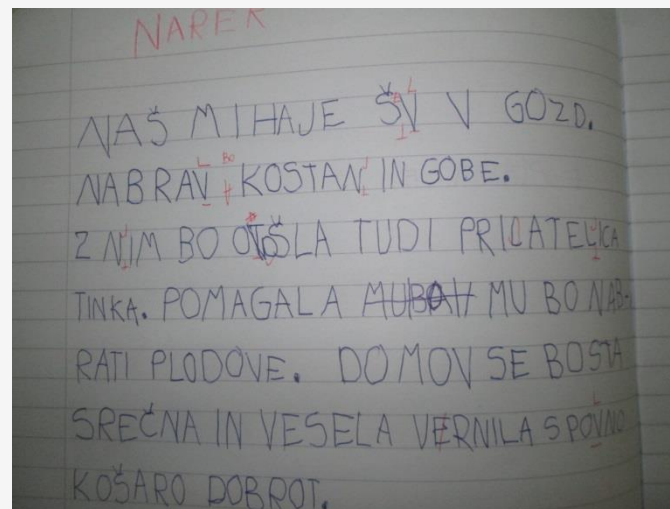 NAREK
NAŠ MIHAJE ŠV V GOZD.
NABRAV KOSTAN IN GOBE.
Z NIM BO ODŠLA TUDI PRICATELICA
TINKA. POMAGALA A MU BO NAB-
RATI PLODOVE. DOMOV SE BOSTA
SREČNA IN VESELA VERNILA S POVNO
KOŠARO DOBROT.